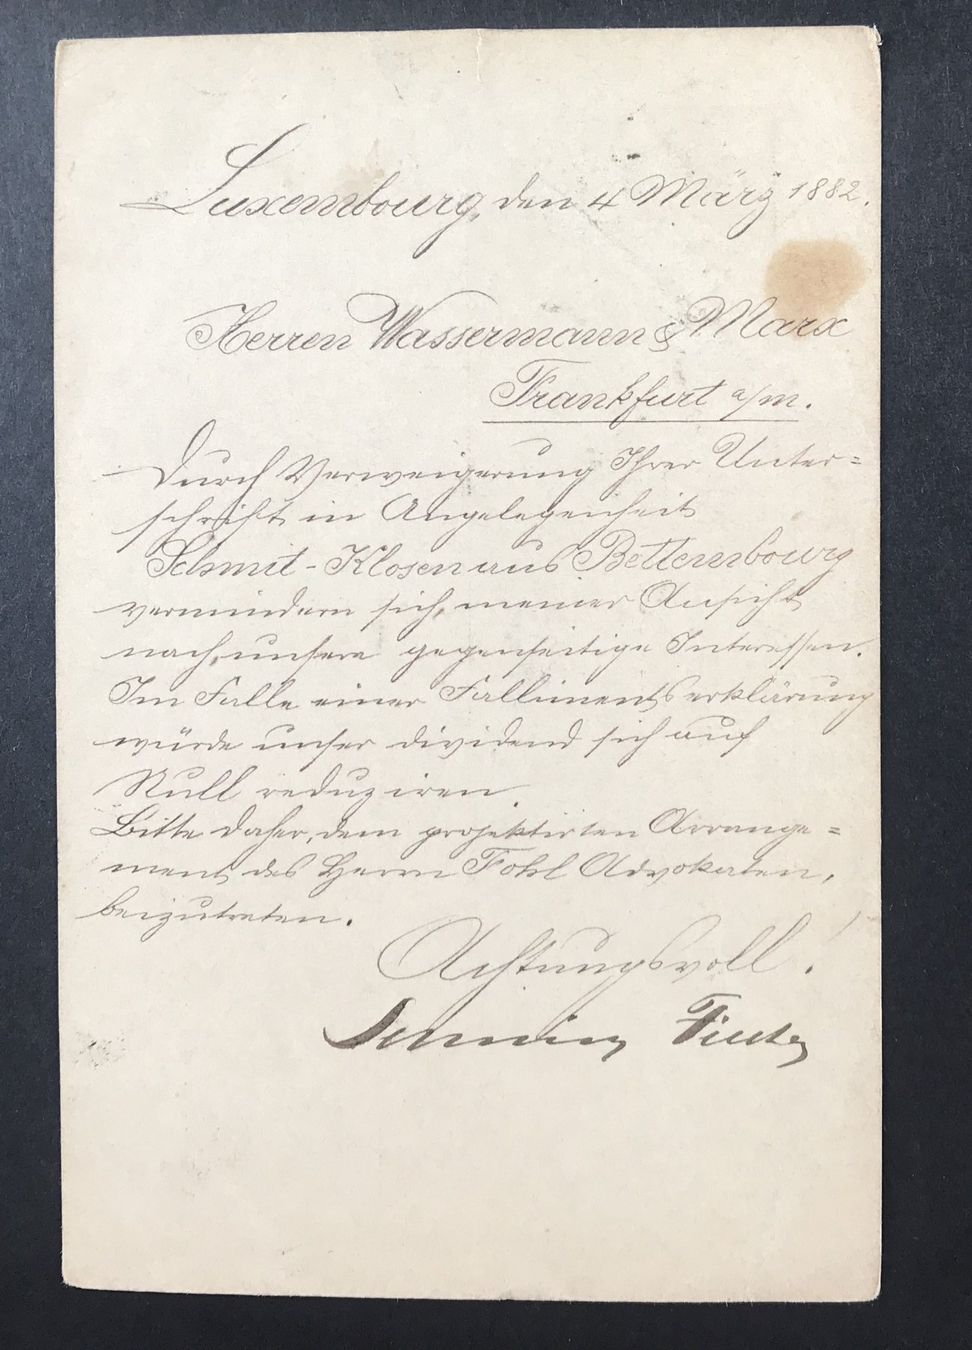 Luxembourg, den 4 März 1882.
Herren Wassermann & Marx
Frankfurt a/m.
Durch Verweigerung Ihrer Unter=
schrift in Angelegenheit
Schmit-Klosen aus Bettembourg
vermindern sich, meiner Ansicht
nach, unsere gegenseitige Interessen.
Im Falle einer Fallimentserklärung
würde unser dividend sich auf
Null reduziren
Bitte daher, dem projektirten Arrange=
ment des Herrn Advokaten,
beizutreten.
Achtungsvoll.